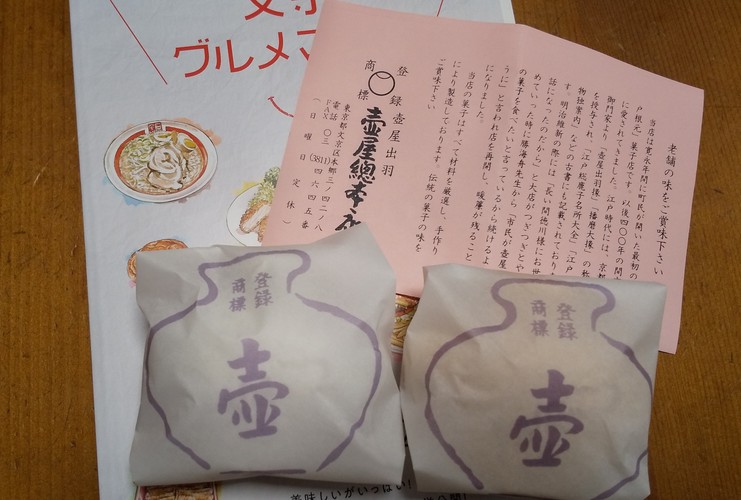 グルメマ
老舗の味をご賞味下さい
当店は寛永年間に町民が開いた最初の
戸根元」菓子店です。以後四〇〇年の間
に愛されてきました。江戸時代には、京都
御門家より「壺屋出羽掾」「播磨大掾」の称
を授与され、「江戸総鹿子名所大会」「江戸
物独案内」などの古書にも記載されており
す。明治維新の際には「長い間徳川様にお世
話になったのだから」と大店がつぎつぎとや
めていった時に勝海舟先生から「市民が壺屋
の菓子を食べたいと言っているから続けるよ
うに」と言われ店を再開し、暖簾が残ること
になりました。
当店の菓子はすべて材料を厳選し、手作り
により製造しております。伝統の菓子の味を
ご賞味下さい
登録商標
壺屋出羽
壺屋總本
東京都文京区本郷三ノ四二ノ八
電話 FAX 〇三(3811)四六四五番
(日曜日定休)
登録
商標
壺
登録
商標
壺
美味しいがいっぱい!